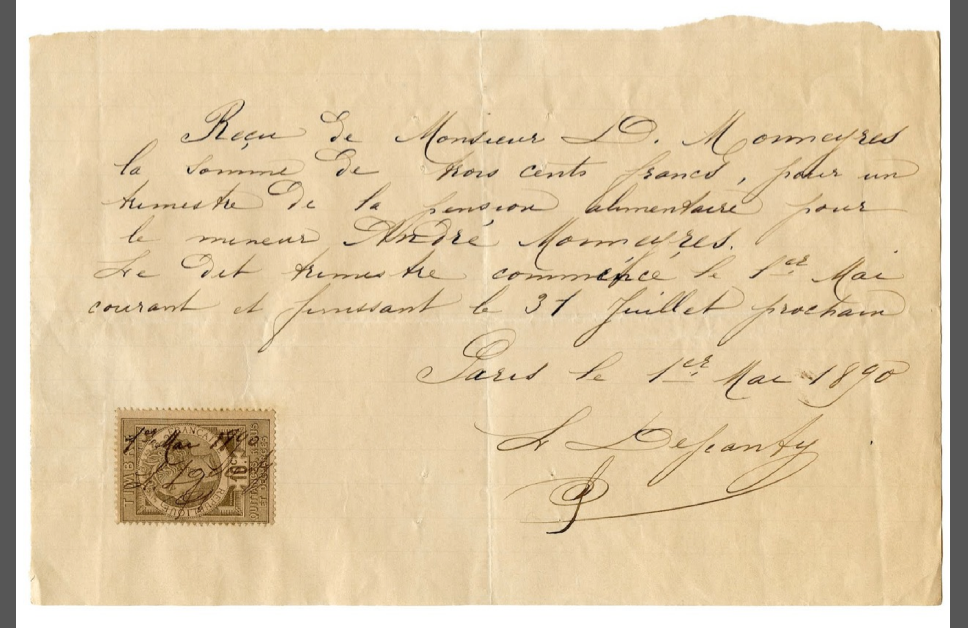 Reçu de Monsieur D. Monneyres
la somme de trois cents francs, pour un
trimestre de la pension alimentaire pour
le mineur André Monneyres.
Le dit trimestre commencé le 1er Mai
courant et finissant le 31 Juillet prochain
Paris le 1er Mai 1890
1er Mai 1890
TIMBRE
FRANÇAISE
RÉPUBLIQUE
10c
QUITTANCES REÇUS